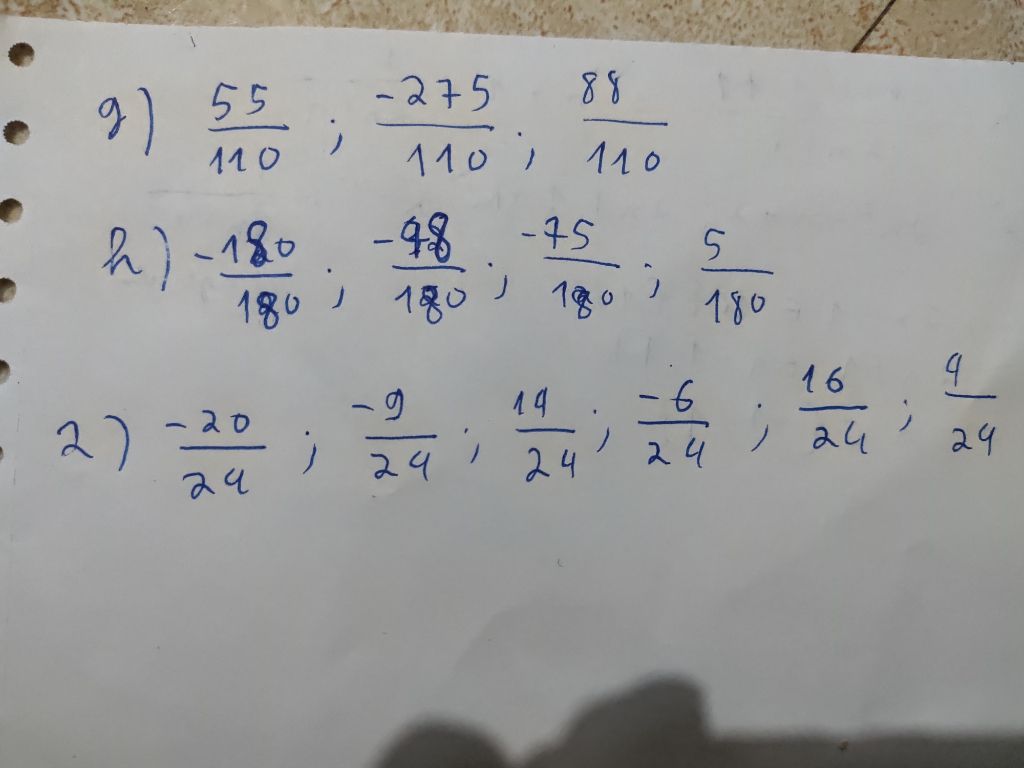 g) 55/110 ; -275/110 ; 88/110
h) -180/180 ; -48/180 ; -75/180 ; 5/180
2) -20/24 ; -9/24 ; 14/24 ; -6/24 ; 16/24 ; 4/24